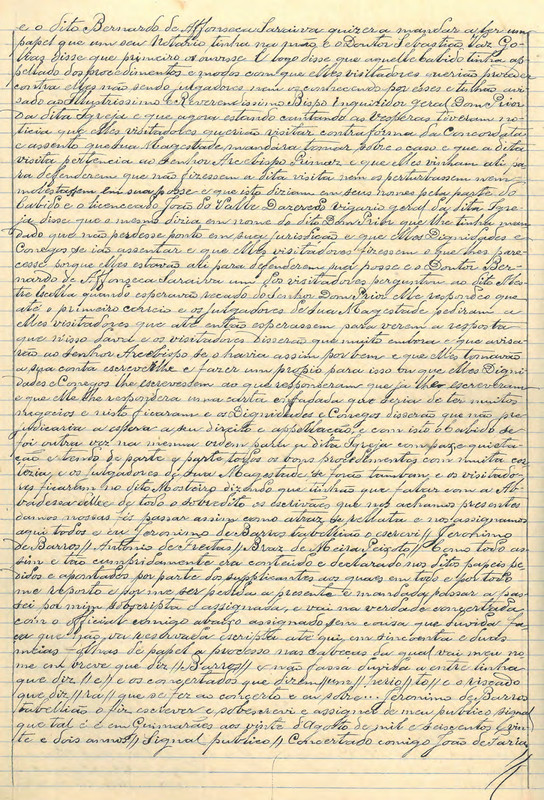 e o dito Bernardo de Affonseca Saraiva quizera mandar a ler um
papel que um seu Notario tinha na mão e o Doutor Sebastião Vaz Go-
lias disse que primeiro o ouvisse E logo disse que aquelle cabido tinha ap-
pellado dos procedimentos e modos com que elles visitadores querião proceder
contra elles não sendo julgadores nem os conhecendo por esses e tinhão avi-
sado ao Illustrissimo e Reverendissimo Bispo Inquisidor geral Dom Prior
da dita Igreja e que agora estando cantando as Vesperas tiveram no-
ticia que elles visitadores querião visitar contra forma da Concordata
e assento que Sua Magestade mandára tomar sobre o caso e que a dita
visita pertencia ao Senhor Arcebispo Primaz e que elles vinham ali pa-
ra defenderem que não fizessem a dita visita nem os perturbassem nem
molestassem em sua posse e que isto diziam em seus nomes pela parte do
Cabido e o licenceado João do Valle Vigario geral da dita Igre-
ja disse que o mesmo dizia em nome do dito Dom Prior que lhe tinha man-
dado que não perdesse ponto em sua jurisdicção e que elles Dignidades e
Conegos se ião assentar e que elles visitadores fizessem o que lhes pare-
cesse porque elles estavão ali para defenderem sua posse e o Doutor Ber-
nardo de Affonseca Saraiva um dos visitadores perguntou ao dito Mes-
tre Escolla quando esperavão recado do Senhor Dom Prior elle respondeo que
até o primeiro correio e os julgadores de Sua Magestade pediram a
elles visitadores que até então esperassem para verem a resposta
que nisso dava e os visitadores disserão que muito embora e que avisa-
rão ao Senhor Arcebispo se o havia assim por bem e que elles tomavão
a sua conta escrever lhe e fazer um propio para isso ou que elles Dig-
nidades e Conegos lhe escrevessem ao que responderam que ja lhe escreveram
e que elle lhe respondera uma carta enfadada que devia de ter muitos
negocios e nisto ficaram e os Dignidades e Conegos disserão que não pre-
judicaria a espera a seu direito e appellação, e com isto o Cabido se
foi outra vez na mesma ordem para a dita Igreja com paz e quieta-
ção e tendo de parte a parte todos os bons procedimentos com muita cor-
tezia, e os julgadores de Sua Magestade se forão tambem e os visitado-
res ficaram no dito Mosteiro dizendo que tinhão que fallar com a Ab-
badessa delle de todo o sobredito os escrivães que nos achamos presentes
damos nossas fés passar assim como atraz se relata e nos assignamos
aqui todos e eu Jeronimo de Barros tabellião o escrevi // Jerohimo
de Barros // Antonio de Freitas // Braz de Meira Peixoto // Como todo as-
sim e tão cumpridamente era conteudo e declarado nos ditos papeis pe-
didos e apontados por parte dos supplicantes aos quaes em todo e por todo
me reporto e por me ser pedida a presente e mandada passar a pas-
sei por mim sobscripta e assignada, e vai na verdade concertada
com o official comigo abaixo assignado sem cousa que duvida fa-
ça que não va resalvada escripta até qui, em cincoenta e duas
meias folhas de papel a processo nas cabeças da qual vai meu no-
me em breve que diz // Barros // e não fassa duvida a entre linha
que diz // e // e os concertados que dizem // // // e o riscado
que diz // ra // que se fez ao concerto e eu sobre Jeronimo de Barros
tabellião o fiz escrever e sobescrevi e assignei de meu publico signal
que tal é em Guimarães aos vinte d'Agosto de mil e seiscentos e vin-
te e dois annos // Signal publico // Concertado comigo João de Faria